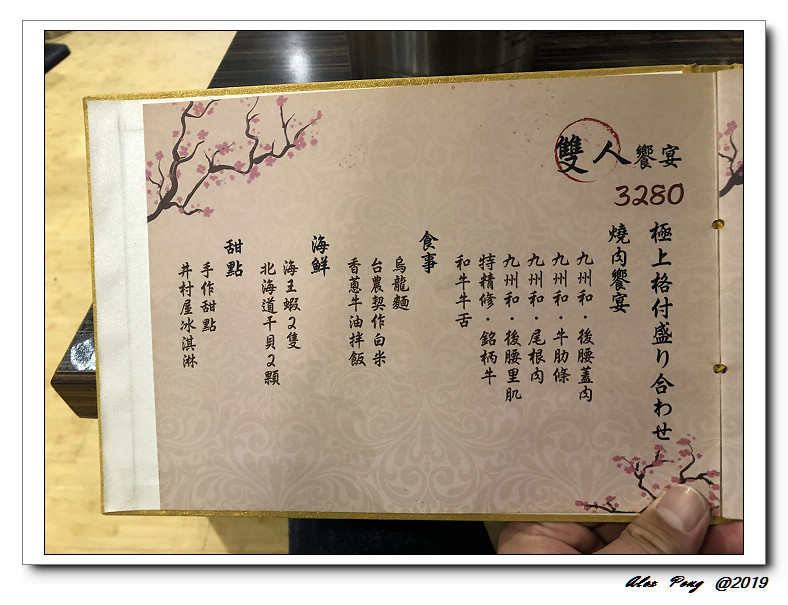 雙人饗宴
3280
極上格付盛り合わせ
燒肉饗宴
九州和·後腰蓋肉
九州和·牛肋條
九州和·尾根肉
九州和·後腰里肌
特精修·銘柄牛
和牛牛舌
食事
烏龍麵
台農契作白米
香蔥牛油拌飯
海鮮
海王蝦2隻
北海道干貝2顆
甜點
手作甜點
井村屋冰淇淋
Alex Peng @2019